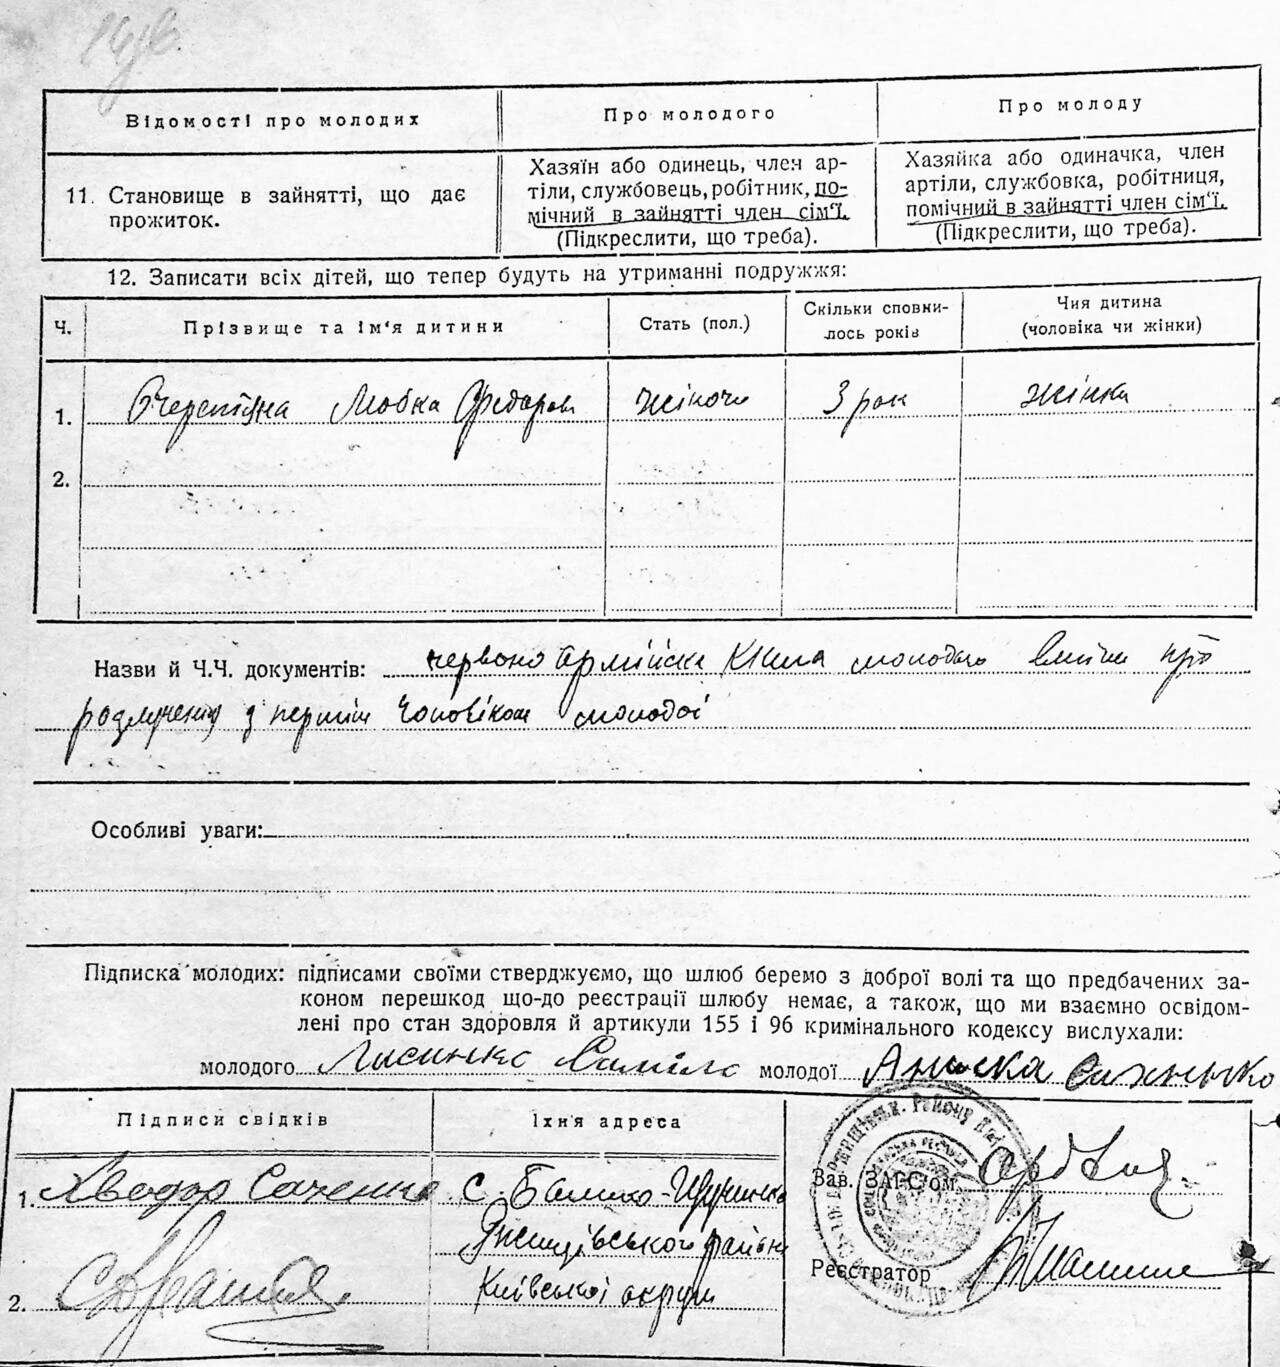 Відомості про молодих
Про молодого
Про молоду
11. Становище в зайнятті, що дає
прожиток.
Хазяїн або одинець, член ар-
тілі, службовець, робітник, по-
мічний в зайнятті член сім'ї.
(Підкреслити, що треба).
Хазяйка або одиначка, член
артілі, службовка, робітниця,
помічний в зайнятті член сім'ї.
(Підкреслити, що треба).
12. Записати всіх дітей, що тепер будуть на утриманні подружжя:
Ч.
Прізвище та ім'я дитини
Стать (пол.)
Скільки сповни-
лось років
Чия дитина
(чоловіка чи жінки)
1. Любка жіноча 3 рок жінка
2.
Назви й Ч.Ч. документів: червоно армійска книга молодого про
розлучення з першим чоловіком молодої
Особливі уваги:
Підписка молодих: підписами своїми стверджуємо, що шлюб беремо з доброї волі та що предбачених за-
коном перешкод що-до реєстрації шлюбу немає, а також, що ми взаємно освідом-
лені про стан здоровля й артикули 155 і 96 кримінального кодексу вислухали:
молодого молодої
Підписи свідків
Їхня адреса
1. с.
району
Київської округи
2.
Зав. ЗАГС'ом
Реєстратор